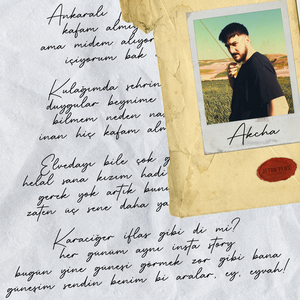 Ankaralı
kafam almıy
ama midem alıyor
içiyorum bak
Kulağımda şehrin
duygular beynime
bilmem neden na
inan hiç kafam alm
Elvedayı bile çok g
helal sana kızım hadi
gerek yok artık bun
zaten üç sene daha ya
Karaciğer iflas gibi di mi?
her günüm aynı insta story
bugün yine güneşi görmek zor gibi bana
güneşim senden benim bi aralar, ey, eyvah!
Akcha